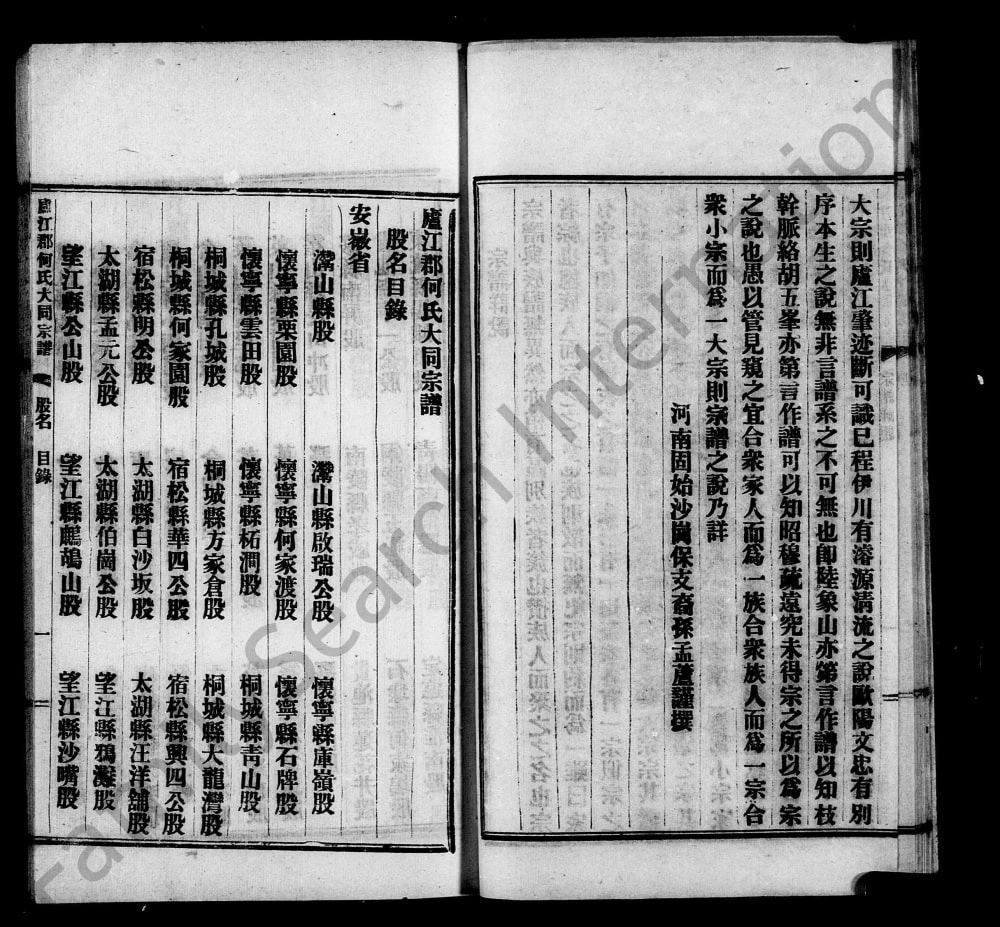 大宗則廬江肇迹斷可識已程伊川有濬源清流之說歐陽文忠有別
序本生之說無非言譜系之不可無也卽陸象山亦第言作譜以知枝
幹脈絡胡五峯亦第言作譜可以知昭穆疏遠究未得宗之所以爲宗
之說也愚以管見窺之宜合衆家人而爲一族合衆族人而爲一宗合
衆小宗而爲一大宗則宗譜之說乃詳
河南固始沙崗保支裔孫孟蘆謹撰
廬江郡何氏大同宗譜
股名目錄
安嶶省
灊山縣股 灊山縣啟瑞公股 懷寧縣庫嶺股
懷寧縣栗園股 懷寧縣何家渡股 懷寧縣石牌股
懷寧縣雲田股 懷寧縣柘澗股 桐城縣靑山股
桐城縣孔城股 桐城縣方家倉股 桐城縣大龍灣股
桐城縣何家園股 宿松縣華四公股 宿松縣興四公股
宿松縣明公股 太湖縣白沙坂股 太湖縣汪洋舖股
太湖縣孟元公股 太湖縣伯崗公股 望江縣鴉灘股
望江縣公山股 望江縣鷓鴣山股 望江縣沙嘴股
廬江郡何氏大同宗譜 股名 目錄 一
Family Search International